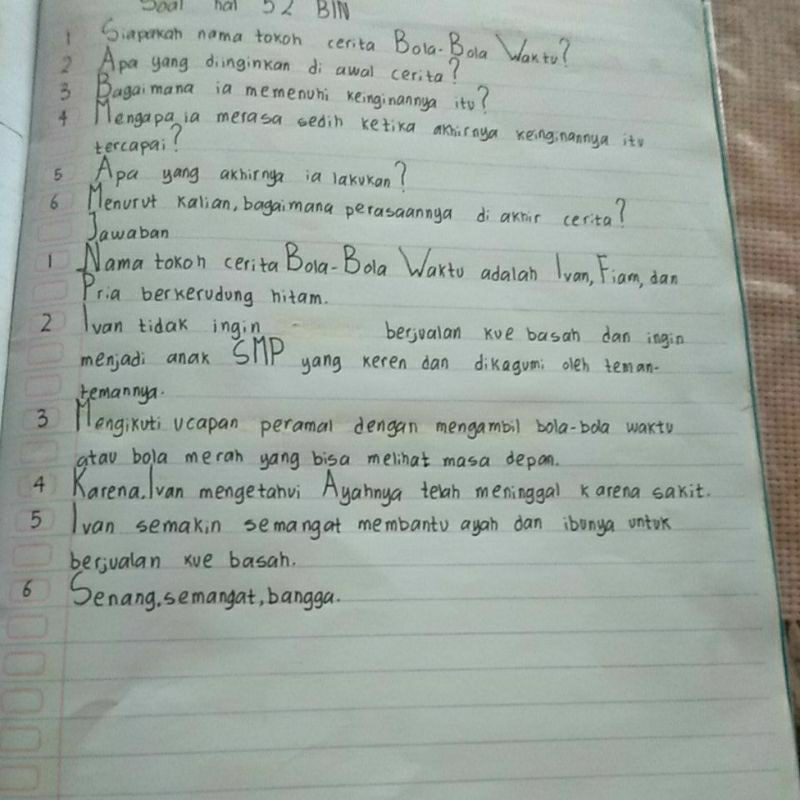 Soal hal 52 BIN
1 Siapakah nama tokoh cerita Bola-Bola Waktu?
2 Apa yang diinginkan di awal cerita?
3 Bagaimana ia memenuhi keinginannya itu?
4 Mengapa ia merasa sedih ketika akhirnya keinginannya itu
tercapai?
5 Apa yang akhirnya ia lakukan?
6 Menurut kalian, bagaimana perasaannya di akhir cerita?
Jawaban
1 Nama tokoh cerita Bola-Bola Waktu adalah Ivan, Fiam, dan
Pria berkerudung hitam.
2 Ivan tidak ingin berjualan kue basah dan ingin
menjadi anak SMP yang keren dan dikagumi oleh teman-
temannya.
3 Mengikuti ucapan peramal dengan mengambil bola-bola waktu
atau bola merah yang bisa melihat masa depan.
4 Karena Ivan mengetahui Ayahnya telah meninggal karena sakit.
5 Ivan semakin semangat membantu ayah dan ibunya untuk
berjualan kue basah.
6 Senang, semangat, bangga.